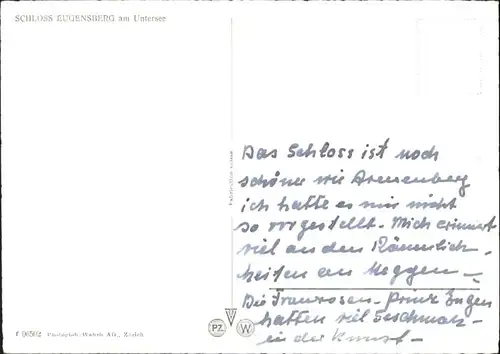 SCHLOSS EUGENSBERG am Untersee
Das Schloss ist noch
schöner wie Arenenberg
ich hatte es mir nicht
so vorgestellt. Mich erinnert
viel an den Räumlich-
keiten an Meggen –
Die Franzosen – Prinz Eugen
hatten viel Geschmack –
in der Kunst –
PZ W
Photoglob-Wehrli AG., Zürich